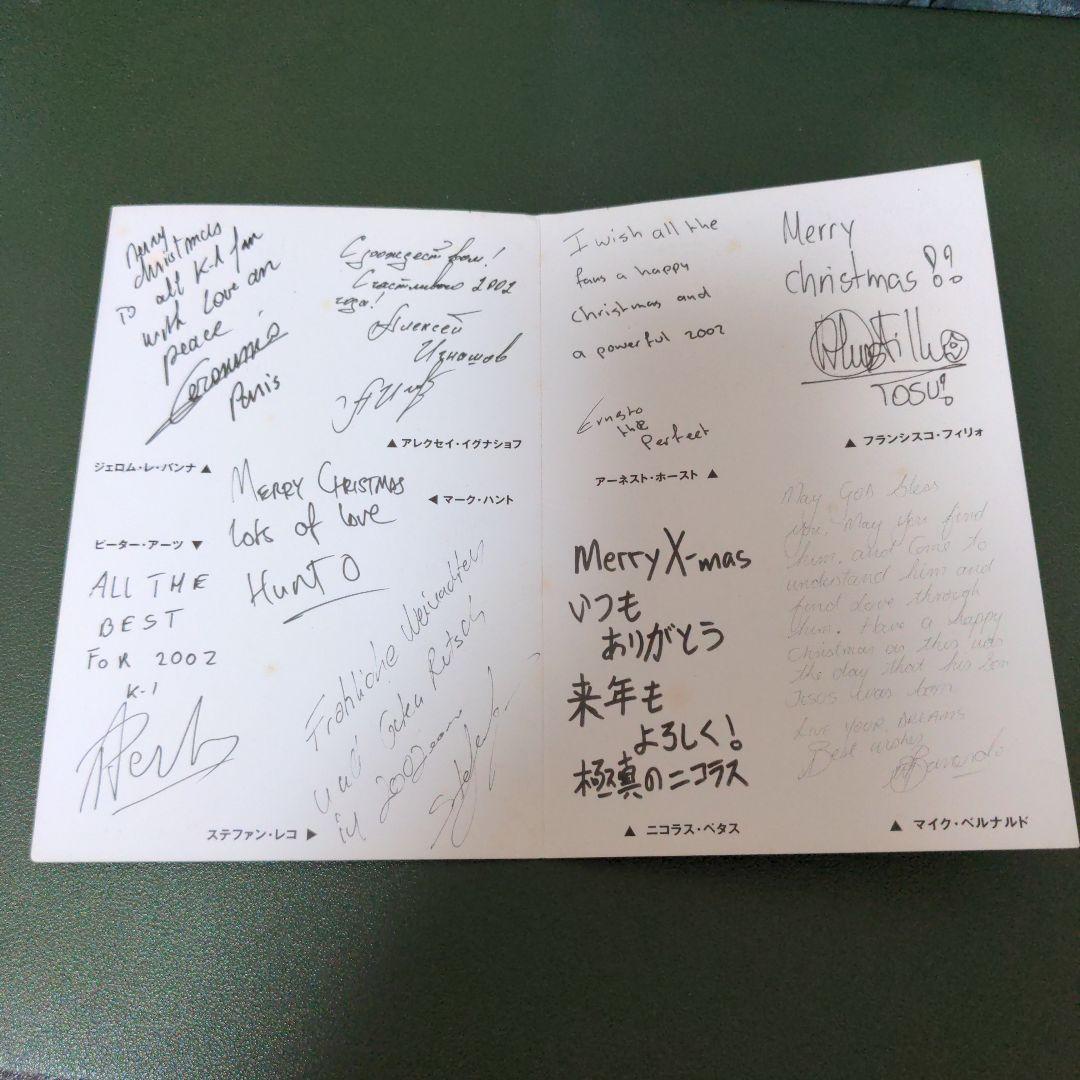 Merry
christmas
TO all K-1 fan
with love an
peace
Paris
ジェロム・レ・バンナ ▲
С рождеством!
Счастливого 2002
года!
Алексей
Игнашов
▲ アレクセイ・イグナショフ
MERRY CHRISTMAS
Lots of love
HUNTO
◀ マーク・ハント
ピーター・アーツ ▼
ALL THE
BEST
FOR 2002
K-1
Fröhliche Weinachten
und Guten Rutsch
in 2002
ステファン・レコ ▶
I wish all the
fans a happy
christmas and
a powerful 2002
Ernesto
the
Perfect
アーネスト・ホースト ▲
Merry
christmas!!
TOSU!
▲ フランシスコ・フィリォ
Merry X-mas
いつも
ありがとう
来年も
よろしく!
極真のニコラス
▲ ニコラス・ペタス
May GOD bless
you. May you find
him. and come to
understand him and
find Love through
him. Have a happy
Christmas as this was
the day that his son
Jesus was born
LIVE YOUR DREAMS
Best wishes
▲ マイク・ベルナルド